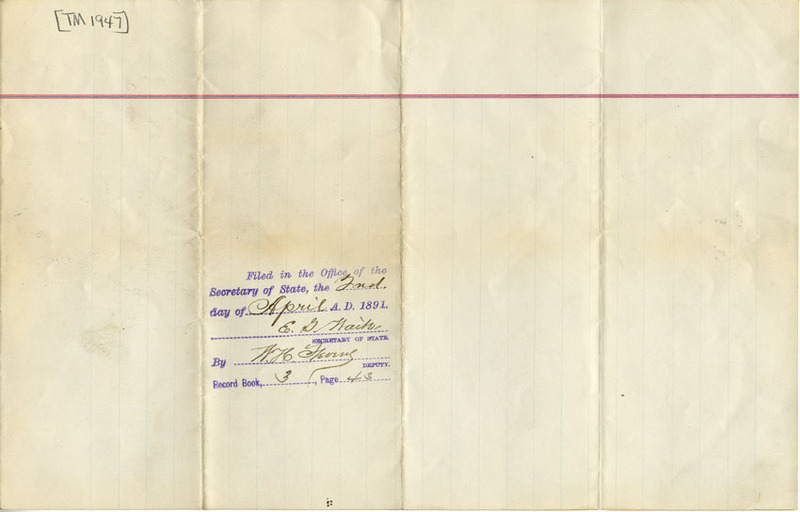 [TM 1947]
Filed in the Office of the
Secretary of State, the 2nd.
day of April A. D. 1891.
E. G. Waite
SECRETARY OF STATE.
By W. H.
DEPUTY.
Record Book, 3, Page 43